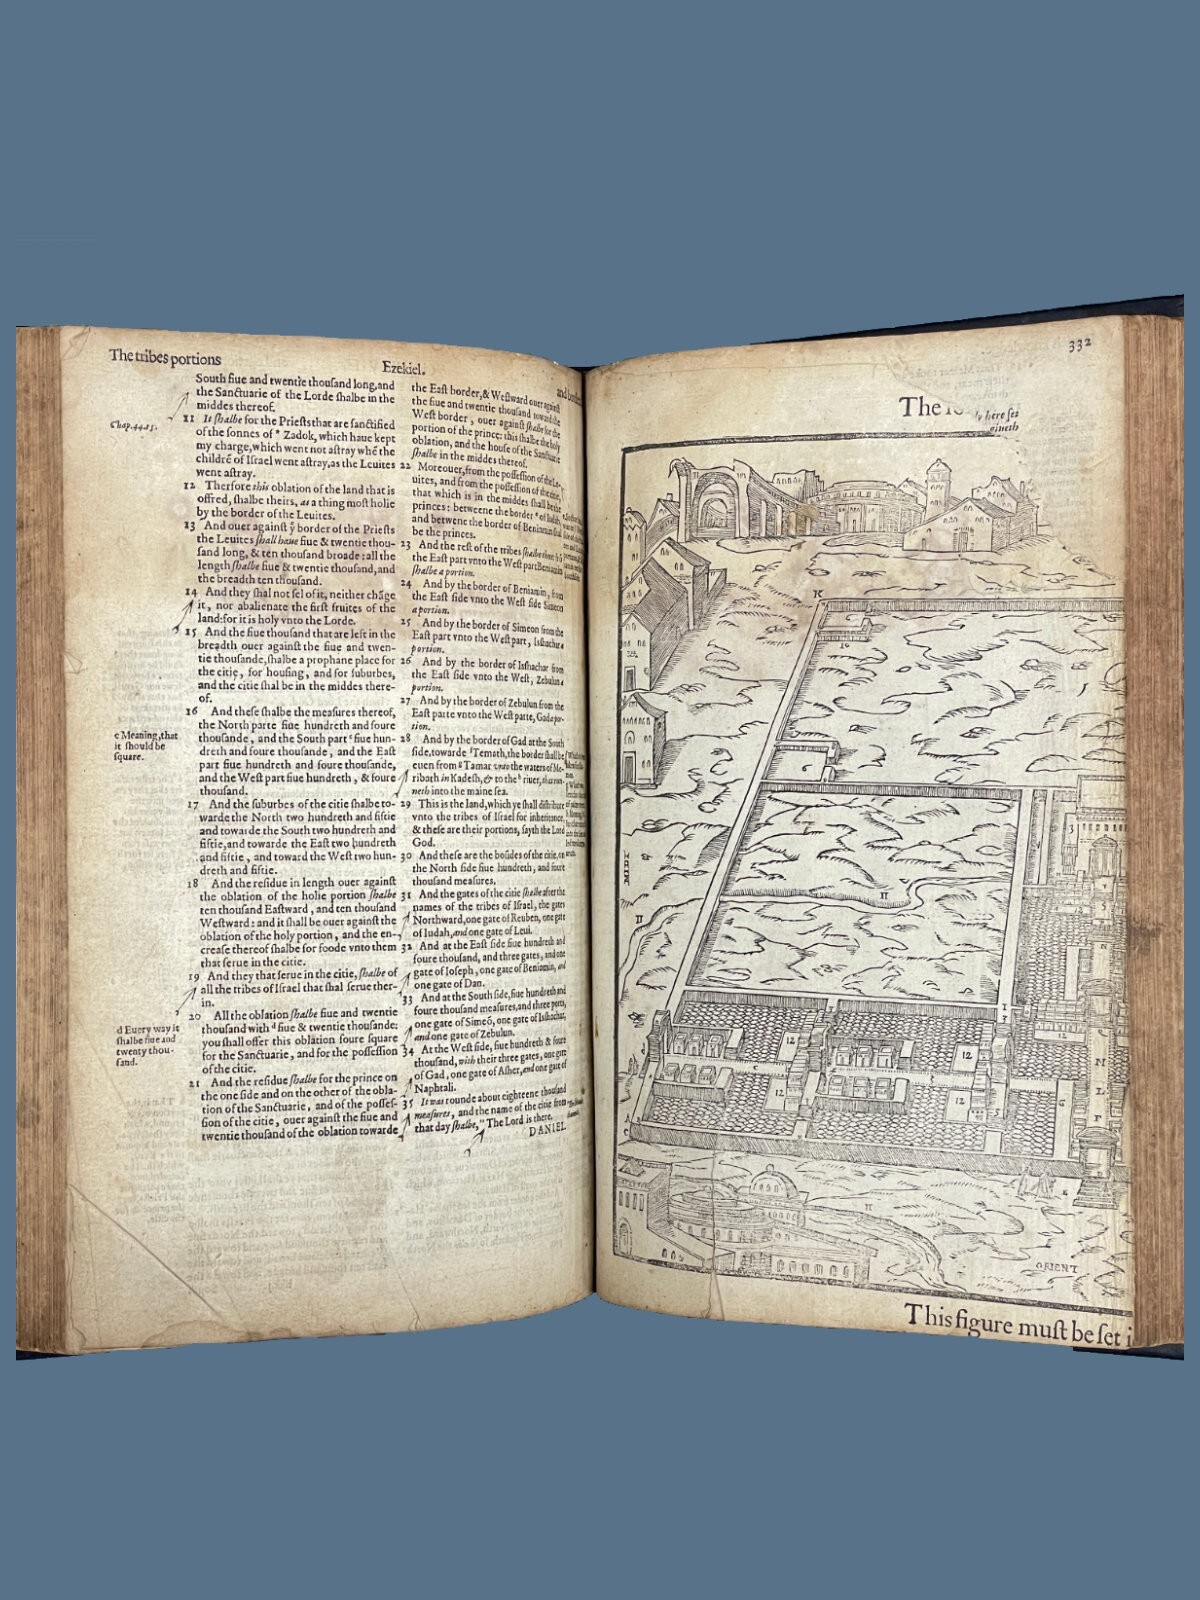 The tribes portions
Ezekiel.
South fiue and twentie thousand long, and
the Sanctuarie of the Lorde shalbe in the
middes thereof.
Chap.44.15.
11 It shalbe for the Priests that are sanctified
of the sonnes of * Zadok, which haue kept
my charge, which went not astray whē the
childrē of Israel went astray, as the Leuites
went astray.
12 Therfore this oblation of the land that is
offred, shalbe theirs, as a thing most holie
by the border of the Leuites.
13 And ouer against ẙ border of the Priests
the Leuites shall haue fiue & twentie thou-
sand long, & ten thousand broade: all the
length shalbe fiue & twentie thousand, and
the breadth ten thousand.
14 And they shal not sel of it, neither chāge
it, nor abalienate the first fruites of the
land: for it is holy vnto the Lorde.
15 And the fiue thousand that are left in the
breadth ouer against the fiue and twen-
tie thousande, shalbe a prophane place for
the citie, for housing, and for suburbes,
and the citie shal be in the middes there-
of.
16 And these shalbe the measures thereof,
the North parte fiue hundreth and foure
thousande, and the South part ᶜ fiue hun-
dreth and foure thousande, and the East
part fiue hundreth and foure thousande,
and the West part fiue hundreth, & foure
thousand.
c Meaning, that
it should be
square.
17 And the suburbes of the citie shalbe to-
warde the North two hundreth and fiftie
and towarde the South two hundreth and
fiftie, and towarde the East two hundreth
and fiftie, and toward the West two hun-
dreth and fiftie.
18 And the residue in length ouer against
the oblation of the holie portion shalbe
ten thousand Eastward, and ten thousand
Westward: and it shall be ouer against the
oblation of the holy portion, and the en-
crease thereof shalbe for foode vnto them
that serue in the citie.
19 And they that serue in the citie, shalbe of
all the tribes of Israel that shal serue ther-
in.
20 All the oblation shalbe fiue and twentie
thousand with ᵈ fiue & twentie thousande:
you shall offer this oblation foure square
for the Sanctuarie, and for the possession
of the citie.
d Euery way it
shalbe fiue and
twenty thou-
sand.
21 And the residue shalbe for the prince on
the one side and on the other of the obla-
tion of the Sanctuarie, and of the posses-
sion of the citie, ouer against the fiue and
twentie thousand of the oblation towarde
the East border, & Westward ouer against
the fiue and twentie thousand toward the
West border, ouer against shalbe for the
portion of the prince: this shalbe the holy
oblation, and the house of the Sanctuarie
shalbe in the middes thereof.
22 Moreouer, from the possession of the Le-
uites, and from the possession of the citie,
that which is in the middes shall be the
princes: betweene the border of Iudah,
and betwene the border of Beniamin shal
be the princes.
23 And the rest of the tribes shalbe thus:
the East part vnto the West part Beniamin
shalbe a portion.
24 And by the border of Beniamin, from
the East side vnto the West side Simeon
a portion.
25 And by the border of Simeon from the
East part vnto the West part, Isshachar a
portion.
26 And by the border of Isshachar from
the East side vnto the West, Zebulun a
portion.
27 And by the border of Zebulun from the
East parte vnto the West parte, Gad a por-
tion.
28 And by the border of Gad at the South
side, towarde Temath, the border shall be
euen from Tamar vnto the waters of Me-
ribath in Kadesh, & to the river, that run-
neth into the maine sea.
29 This is the land, which ye shall distribute
vnto the tribes of Israel for inheritance,
& these are their portions, sayth the Lord
God.
30 And these are the boūdes of the citie, on
the North side fiue hundreth, and foure
thousand measures.
31 And the gates of the citie shalbe after the
names of the tribes of Israel, the gates
Northward, one gate of Reuben, one gate
of Iudah, and one gate of Leui.
32 And at the East side fiue hundreth and
foure thousand, and three gates, and one
gate of Ioseph, one gate of Beniamin, and
one gate of Dan.
33 And at the South side, fiue hundreth and
foure thousand measures, and three ports,
one gate of Simeō, one gate of Isshachar,
and one gate of Zebulun.
34 At the West side, fiue hundreth & foure
thousand, with their three gates, one gate
of Gad, one gate of Asher, and one gate of
Naphtali.
35 It was rounde about eighteene thousand
measures, and the name of the citie from
that day shalbe, " The Lord is there.
DANIEL
332
The
here set
K
10
6
3
H
H
12
12
12
12
12
G
N
L
F
E
H
ORIENT
This figure must be set i